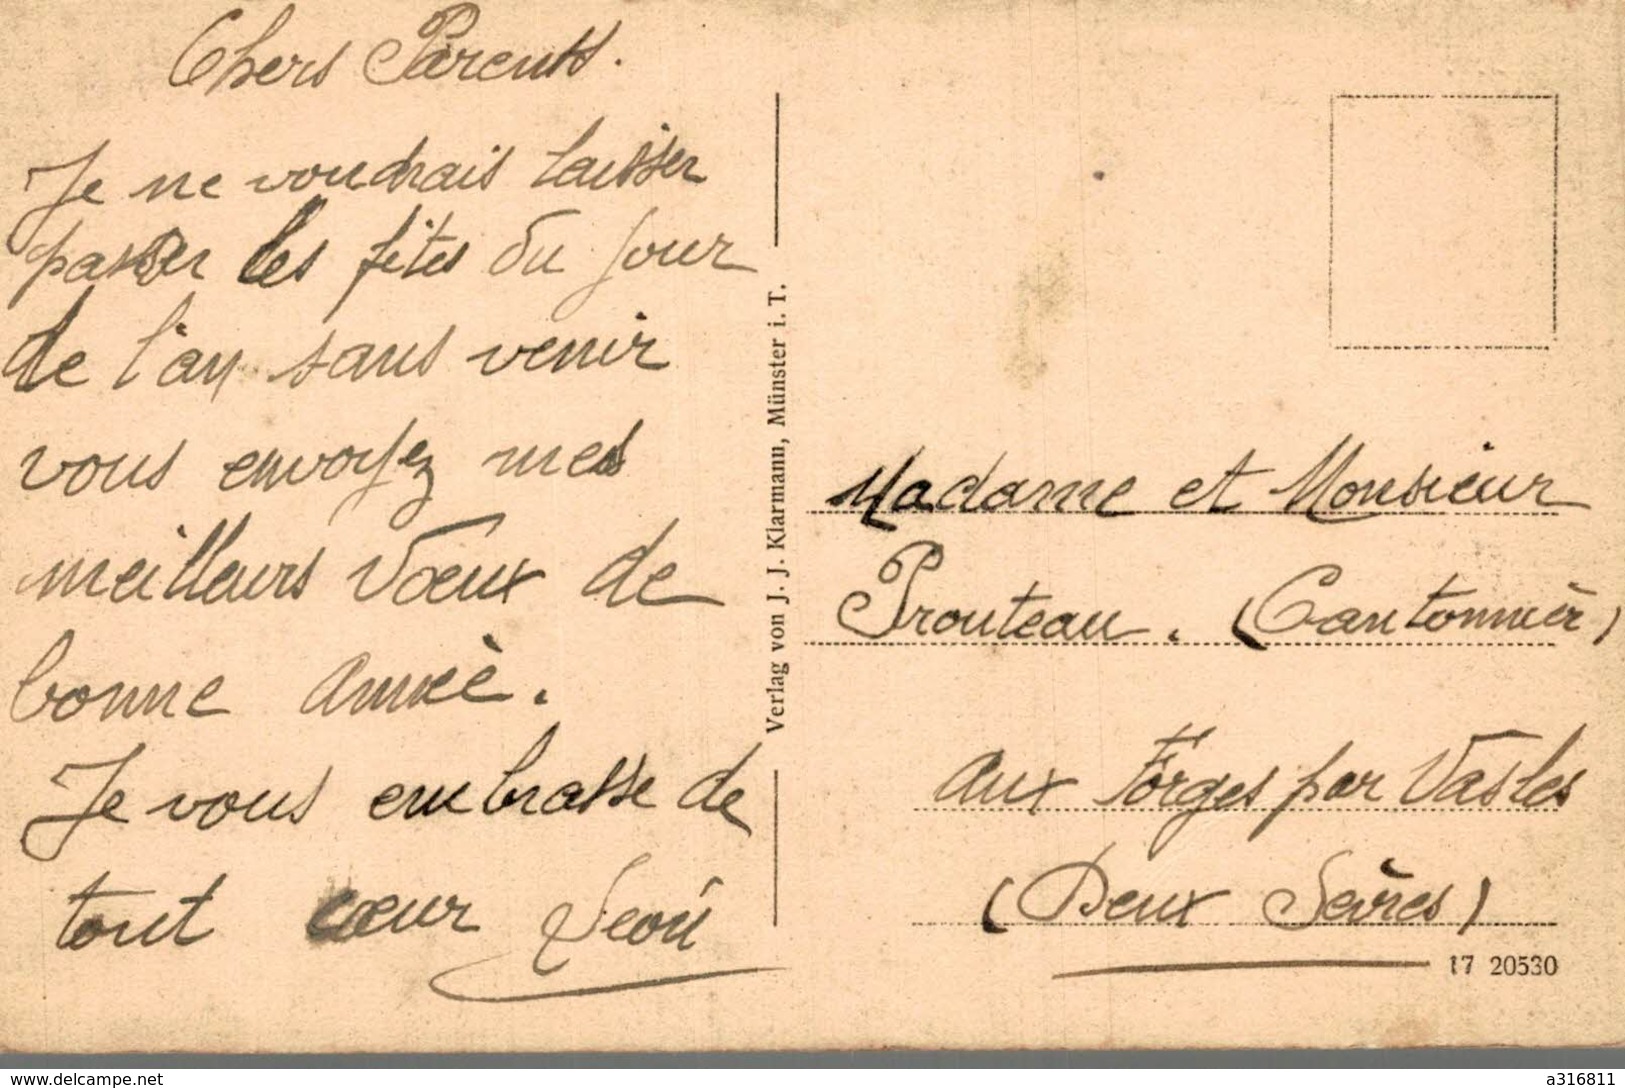 Chers Parents.
Je ne voudrais laisser
passer les fêtes du jour
de l'an sans venir
vous envoyez mes
meilleurs Vœux de
bonne anneè.
Je vous embrasse de
tout cœur
Verlag von J. J. Klarmann, Münster i. T.
Madame et Monsieur
Prouteau. (Cantonnièr)
aux Forges par Vasles
(Deux Sèvres)
17 20530
delcampe.net
a316811